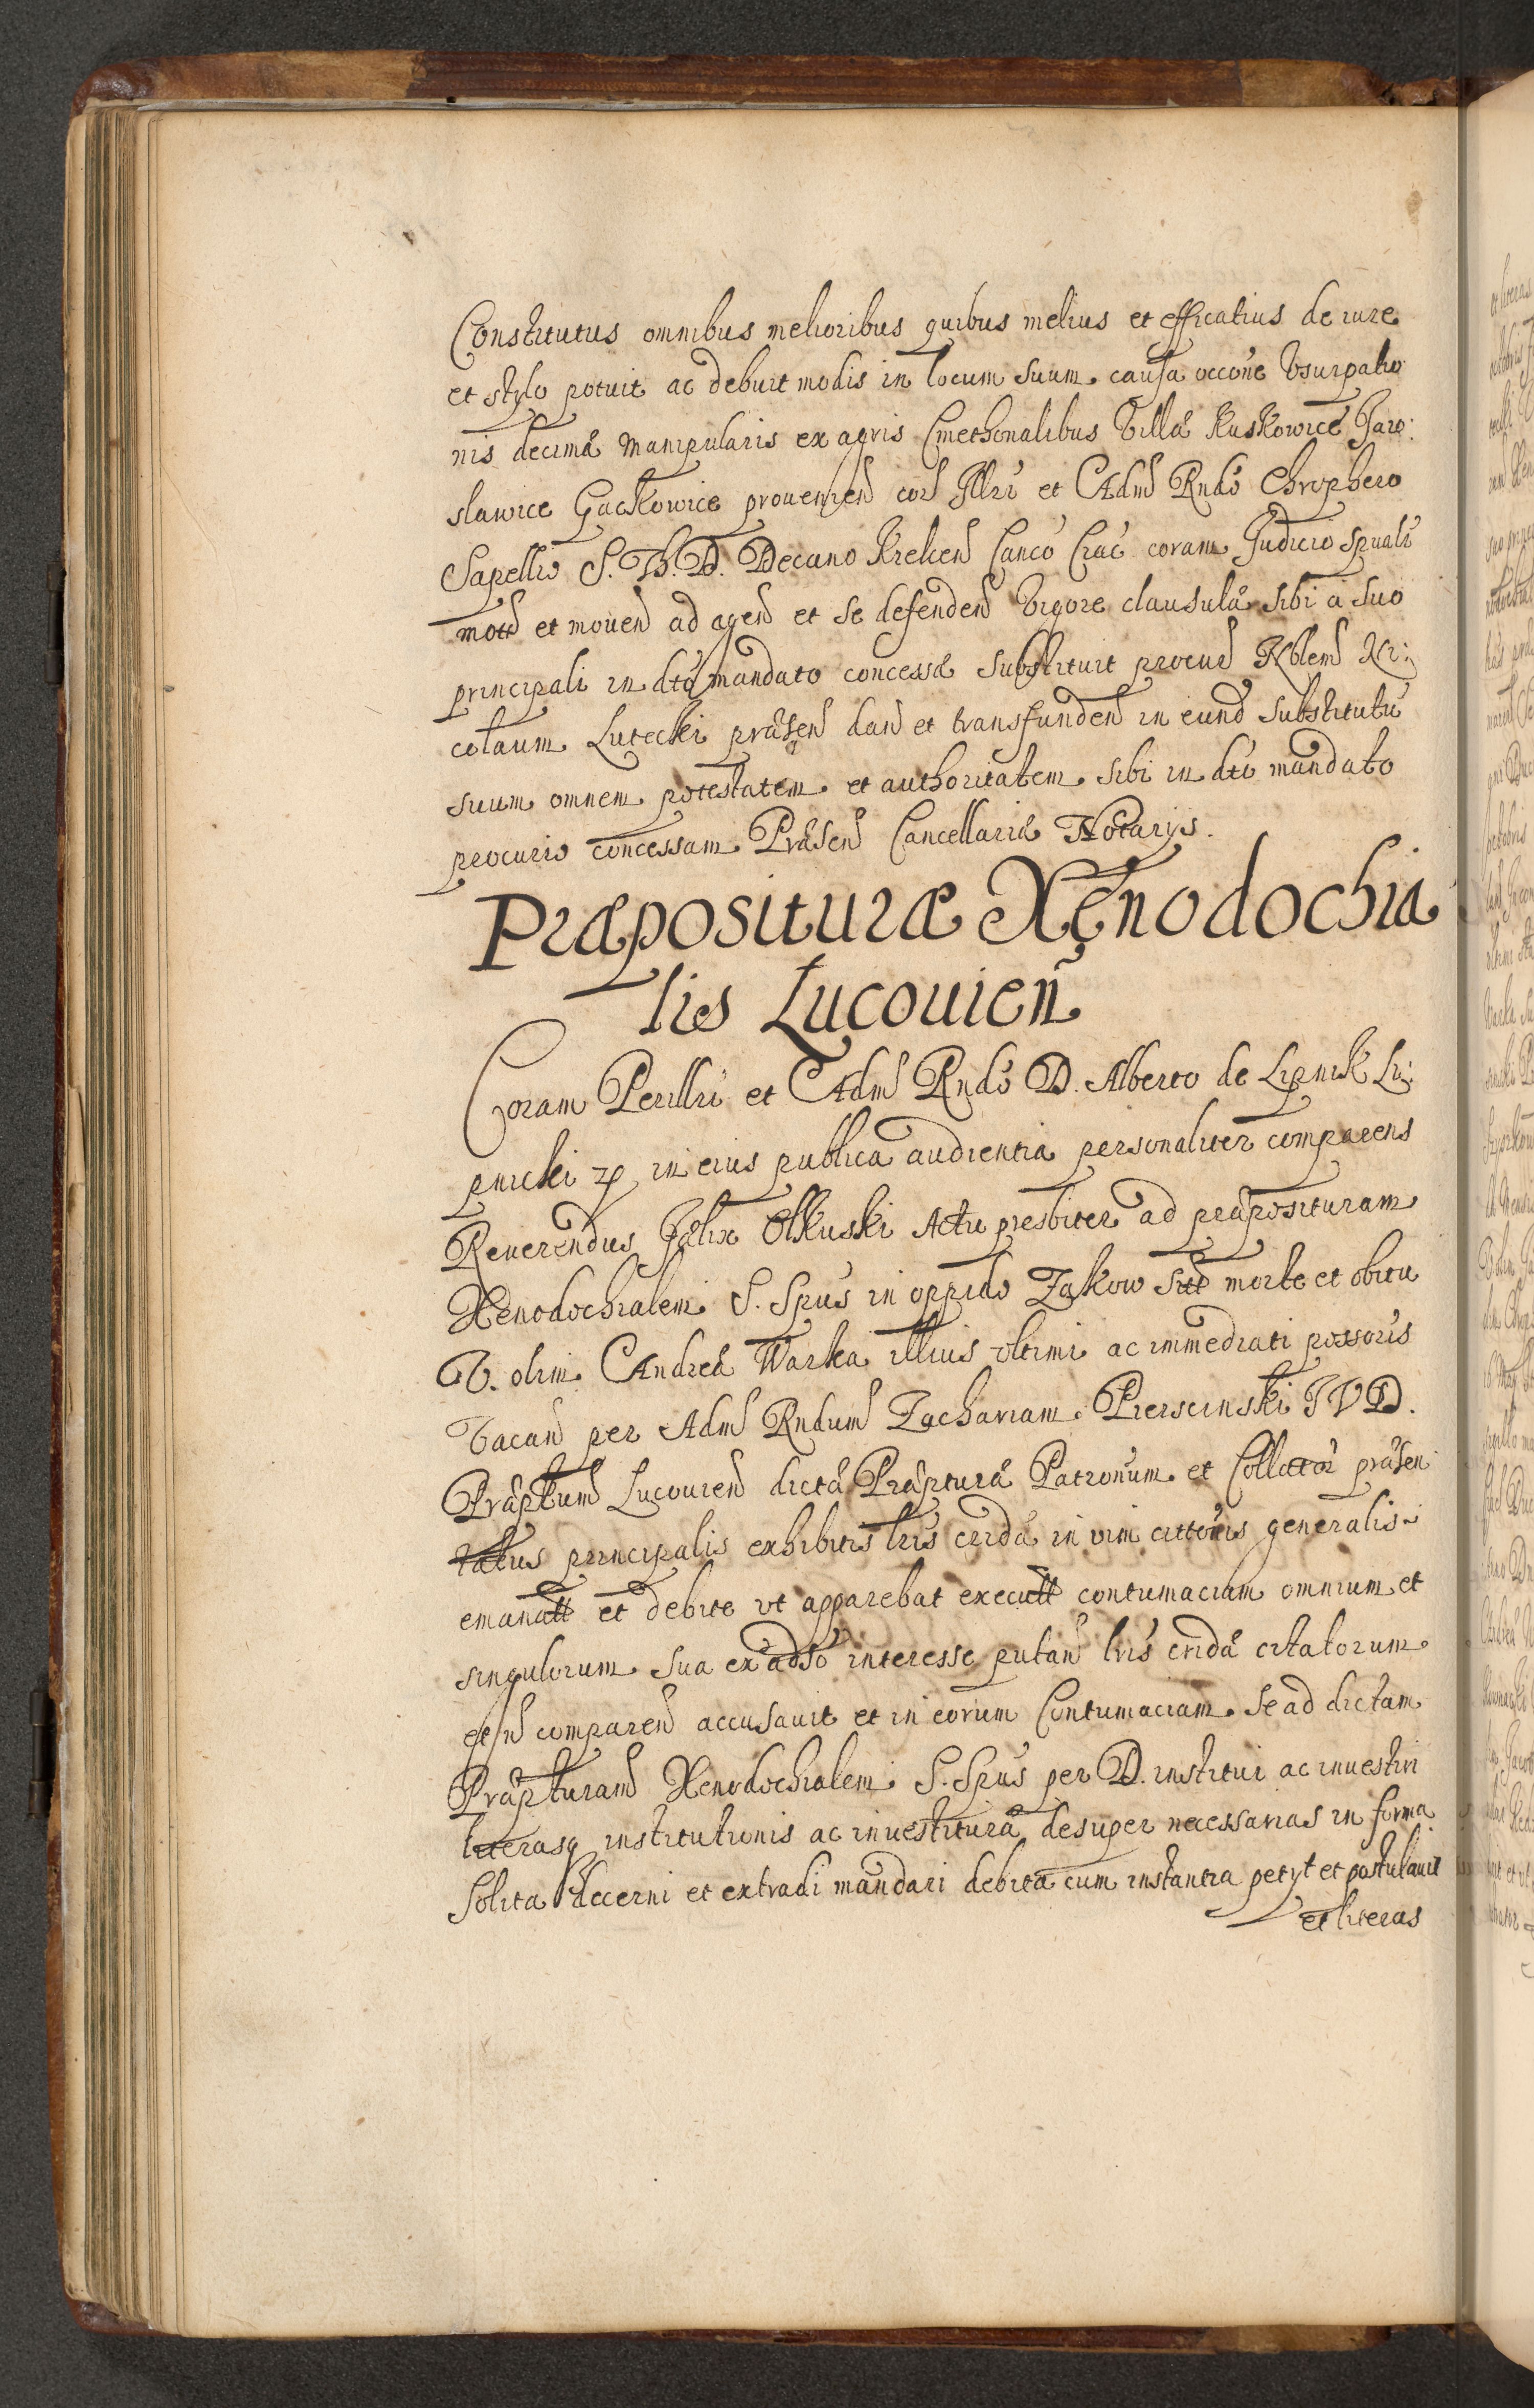 Constitutus omnibus melioribus quibus melius et efficatius de iure
et stylo potuit ac debuit modis in locum suum causa occõne Vsurpatio
nis decimæ manipularis ex agris Cmethonalibus Villæ Kuskowice Jaro:
slawice Gackowice prouenien̄ cor̄ Illri et Adm̄ Rndo Chrophero
Sapellio S. Th. D. Decano Kielcen̄ Canco Crac coram Judicio spuali
mott et mouen̄ ad agen̄ et se defenden̄ Vigore clausulæ sibi a suo
principali in dto mandato concessæ substituit procur̄ Nblem̄ Ni:
colaum Lutecki præsen̄ dan̄ et transfunden̄ in eund̄ substitutũ
suum omnem potestatem et authoritatem sibi in dto mandato
procurio concessam Præsen̄ Cancellariæ Notarijs.
Præposituræ Xenodochia
lis Lucouien̄
Coram Perillri et Adm̄ Rndo D. Alberto de Lipnik Li:
pnicki in eius publica audientia personaliter comparens
Reuerendus Fælix Olkuski Actu presbiter ad præposituram
Xenodochialem S. Spus in oppido Zakow sitt morte et obitu
V. olim Andreæ Warka illius vltimi ac immediati possoris
Vacan̄ per Adm̄ Rndum̄ Zachariam Pierscinski JVD.
Præptum̄ Lucouien̄ dictæ Præpturæ Patronum et Collator præsen
tatus principalis exhibitis lris cridæ in vim cittonis generalis
emanatt et debite vt apparebat executt contumaciam omnium et
singulorum sua ex adso interesse putan̄ lris cridæ citatorum
et n̄ comparen̄ accusauit et in eorum Contumaciam se ad dictam
Præpturam̄ Xenodochialem S. Spus per D. institui ac inuestiri
literasq institutionis ac inuestituræ desuper necessarias in forma
solita decerni et extradi mandari debita cum instantia petyt et postulauit
et literas